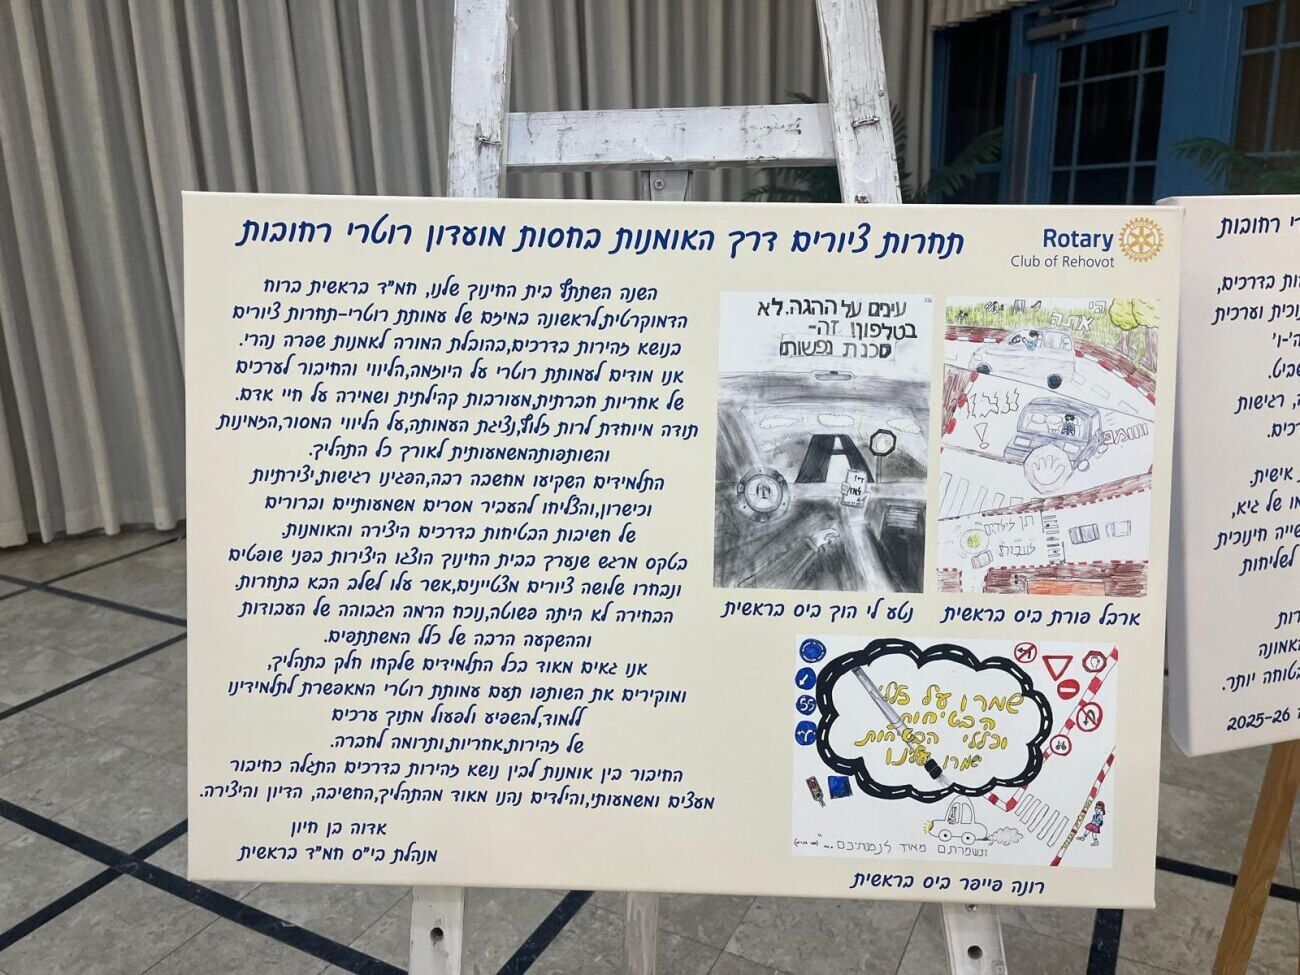 תחרות ציורים דרך האומנות בחסות מועדון רוטרי רחובות
Rotary
Club of Rehovot
השנה השתתף בית החינוך שלנו, חמ"ד בראשית ברוח
הדמוקרטית,לראשונה במיזם של עמותת רוטרי-תחרות ציורים
בנושא זהירות בדרכים,בהובלת המורה לאמנות שפרה נהרי.
אנו מודים לעמותת רוטרי על היוזמה,הליווי והחיבור לערכים
של אחריות חברתית,מעורבות קהילתית ושמירה על חיי אדם.
תודה מיוחדת לרות זלוף,נציגת העמותה,על הליווי המסור,הזמינות
והשותפותהמשמעותית לאורך כל התהליך.
התלמידים השקיעו מחשבה רבה,הפגינו רגישות,יצירתיות
וכישרון,והצליחו להעביר מסרים משמעותיים וברורים
של חשיבות הבטיחות בדרכים היצירה והאומנות.
בטקס מרגש שנערך בבית החינוך הוצגו היצירות בפני שופטים
ונבחרו שלושה ציורים מצטיינים,אשר עלו לשלב הבא בתחרות
הבחירה לא היתה פשוטה,נוכח הרמה הגבוהה של העבודות
וההשקעה הרבה של כלל המשתתפים.
אנו גאים מאוד בכל התלמידים שלקחו חלק בתהליך,
ומוקירים את השותפו תעם עמותת רוטרי המאפשרת לתלמידינו
ללמוד,להשפיע ולפעול מתוך ערכים
של זהירות,אחריות,ותרומה לחברה.
החיבור בין אומנות לבין נושא זהירות בדרכים התגלה כחיבור
מעצים ומשמעותי,והילדים נהנו מאוד מהתהליך,החשיבה, הדיון והיצירה.
אדוה בן חיון
מנהלת בי"ס חמ"ד בראשית
עינים על ההגה.לא
בטלפון! זה-
סכנת נפשות!
נטע לי הוך ביס בראשית
ארבל פורת ביס בראשית
שמרו על
הבטיחות
וכללי הבטיחות
ישמרו
ונשמרתם מאוד לנפשותיכם...
רונה פייפר ביס בראשית
רי רחובות
ות בדרכים,
נוכית וערכית
שביט.
ה, רגישות
רכים.
אישית.
מו של גיא,
שייה חינוכית
לשליחות
רות
אמונה
בטוחה יותר.
2025-26